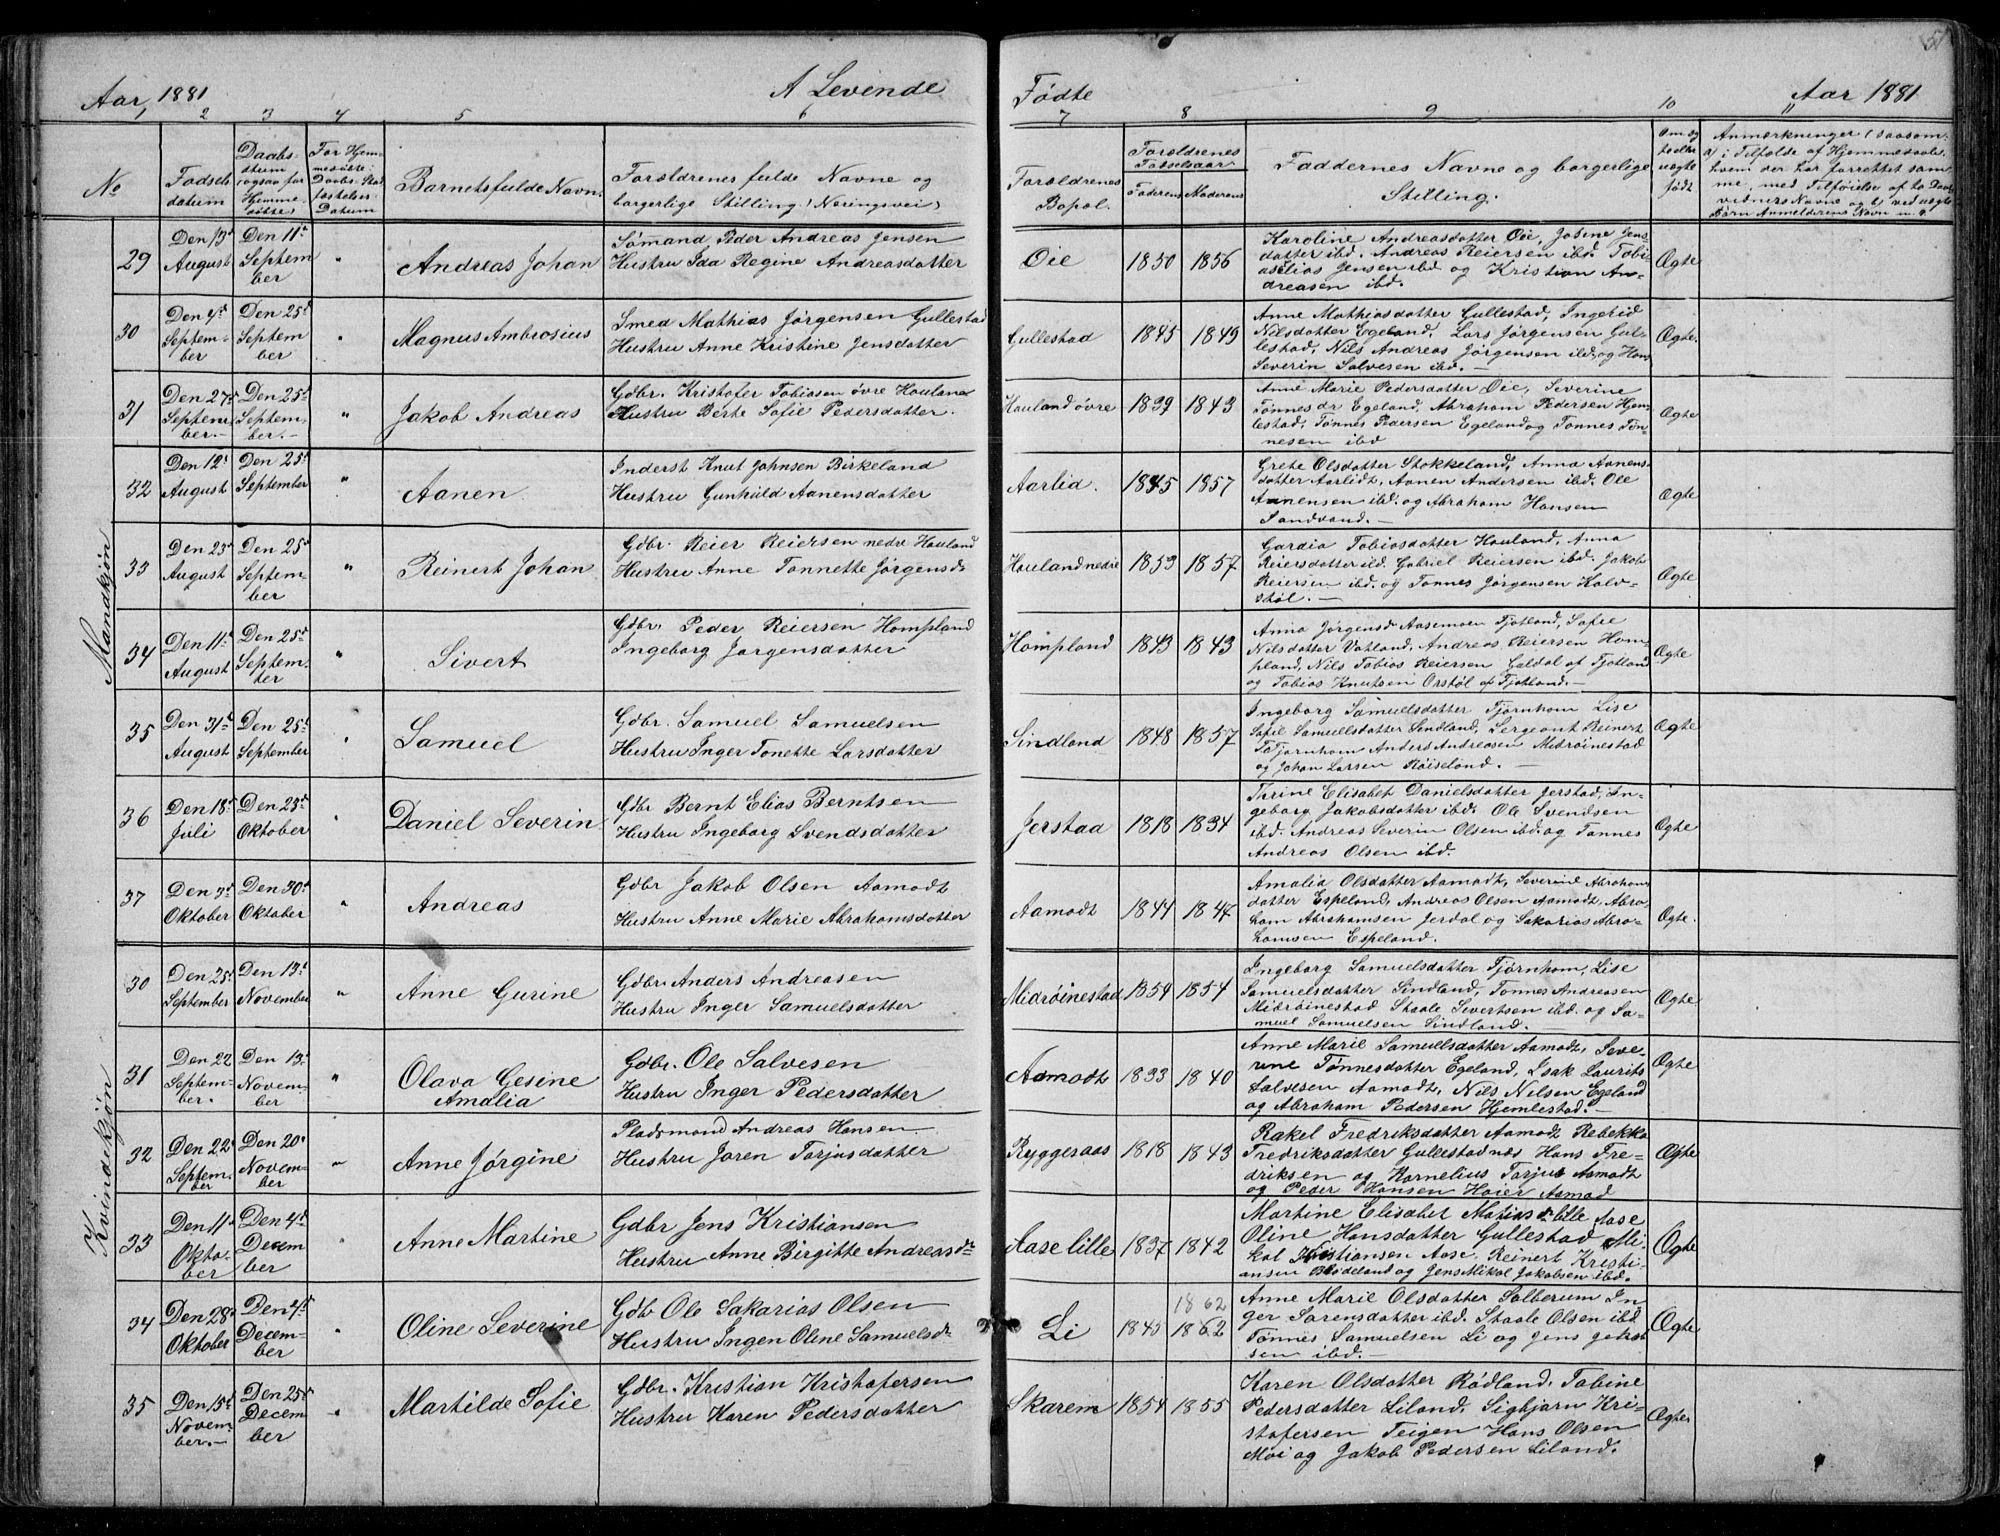 51
Aar 1881
A Levende
Født e
Aar 1881
1 2 3 4 5 6 7 8 9 10 11
No
Fødsels datum
Daabs datum ogsaa for Hjemme døbte
For Hjemmedøbte Daabs Stadfæstelses Datum
Barnets fulde Navn
Forældrenes fulde Navne og
borgerlige Stilling (Næringsvei)
Forældrenes Bopæl.
Forældrenes Fødselsaar
Faderens Moderens
Faddernes Navne og borgerlige
Stilling.
Om ægte eller uægte født
Anmærkninger (saasom
a) i Tilfælde af Hjemmedaab
hvem der har forrettet sam-
me, med Tilføielse af to Daabs
vidners Navne og b) ved uægte
Børn Anmelderens Navn m. v.
Mandkjøn
29
Den 13d August
Den 11d Septem ber
"
Andreas Johan
Sømand Peder Andreas Jensen
Hustru Ida Regine Andreasdatter
Øie
1850 1856
Karoline Andreasdatter Øie, Josine Jens
datter ibd. Andreas Reiersen ibd. Tobi-
as Elias Jensen ibd og Kristian An-
dreasen ibd.
Ægte
30
Den 4d Septem- ber
Den 25d Septem ber
"
Magnus Ambrosius
Smed Mathias Jørgensen Gullestad
Hustru Anne Kristine Jensdatter
Gullestad
1845 1849
Anne Mathiasdatter Gullestad, Ingerid
Nilsdatter Egeland, Lars Jørgensen Gul-
lestad, Nils Andreas Jørgensen ibd, og Hans
Severin Salvesen ibd. —
Ægte.
31
Den 27d Septem ber. —
Den 25d Septem- ber. —
"
Jakob Andreas
Gdbr. Kristofer Tobiasen øvre Houland
Hustru Berte Sofie Pedersdatter.
Houland øvre
1839 1843
Anne Marie Pedersdatter Øie, Severine
Tønnesdr Egeland, Abraham Pedersen Hjem-
lestad, Tønnes Pedersen Egeland og Tønnes Tøn-
nesen ibd
Ægte
32
Den 12d August
Den 25d September
"
Aanen
Inderst Knut Johnsen Birkeland
Hustru Gunhild Aanensdatter
Aarlid.
1845 1857
Grethe Olsdatter Stokkeland, Anna Aanens-
datter Aarlidt, Aanen Andersen ibd. Ole
Aanensen ibd. og Abraham Hansen
Sandvand. —
Ægte
33
Den 23d August
Den 25d Septem- ber
"
Reinert Johan
Gdbr. Reier Reiersen nedre Houland
Hustru Anne Tonnette Jørgensd.
Houland nedre
1853 1857
Gardia Tobiasdatter Houland, Anna
Reiersdatter ibd. Gabriel Reiersen ibd. Jakob
Reiersen ibd. og Tønnes Jørgensen Kalv-
støl. —
Ægte
34
Den 11d August
Den 25d Septem- ber
"
Sivert
Gdbr. Peder Reiersen Hompland
Ingeborg Jørgensdatter
Hompland
1843 1843
Anna Jørgensd Aasemoen Fjotland, Sofie
Nilsdatter Vatland, Andreas Reiersen Hom-
pland, Nils Tobias Reiersen Galdal af Fjotland
og Tobias Knutsen Orstøl af Fjotland. —
Ægte
35
Den 31d August
Den 25d September
"
Samuel
Gdbr. Samuel Samuelsen
Hustru Inger Tonette Larsdatter
Sindland
1848 1857
Ingeborg Samuelsdatter Tjørnhom Lise
Sofie Samuelsdatter Sindland, Sergeant Reinert
Tjørnhom Anders Andreasen Midrøinestad
og Johan Larsen Røiseland. —
Ægte
36
Den 18d Juli
Den 23d Oktober
"
Daniel Severin
Gdbr Bernt Elias Berntsen
Hustru Ingeborg Svendsdatter
Jerstad
1818 1834
Thrine Elisabet Danielsdatter Jerstad, In-
geborg Jakobsdatter ibd. Ole Svendsen
ibd. Andreas Severin Olsen ibd. og Tønnes
Andreas Olsen ibd.
Ægte
37
Den 3d Oktober
Den 30d Oktober
"
Andreas
Gdbr Jakob Olsen Aamodt
Hustru Anne Marie Abrahamsdatter
Aamodt
1844 1847
Amalia Olsdatter Aamodt, Severine Abrahams
datter Espeland, Andreas Olsen Aamodt, Abra-
ham Abrahamsen Jerdal og Sakarias Abra-
hamsen Espeland.
Ægte.
Kvindekjøn
30
Den 25d September
Den 13d November
"
Anne Gurine
Gdbr. Anders Andreasen
Hustru Inger Samuelsdatter
Midrøinestad
1854 1854
Ingeborg Samuelsdatter Tjørnhom, Lise
Samuelsdatter Sindland, Tønnes Andreasen
Midrøinestad Staale Severtsen ibd. og Sa-
muel Samuelsen Sindland.
Ægte
31
Den 22 Septem- ber.
Den 13d Novem- ber
"
Olava Gesine
Amalia
Gdbr. Ole Salvesen
Hustru Inger Pedersdatter
Aamodt
1833 1840
Anne Marie Samuelsdatter Aamodt, Seve-
rine Tønnesdatter Egeland, Isak Laurits
Salvesen Aamodt, Nils Nilsen Egeland
og Abraham Pedersen Hjemlestad. —
Ægte
32
Den 22d Septem- ber
Den 20d Novem- ber
"
Anne Jørgine
Pladsmand Andreas Hansen
Hustru Joren Tarjusdatter
Ryggeraas
1818 1843
Rakel Fredriksdatter Aamodt Rebekka
Fredriksdatter Gullestadnæs Hans Fre-
driksen og Kornelius Tarjus Aamodt
og Peder Hansen Haier Aamod
Ægte
33
Den 11d Okto- ber
Den 4d Decem ber
"
Anne Martine
Gdbr Jens Kristiansen
Hustru Anne Birgitte Andreasdr
Aase lille
1837 1842
Martine Elisabet Matiasdr lille Aase
Oline Hansdatter Gullestad Mi-
kal Kristiansen Aase. Reinert Kristi-
ansen Blødeland og Jens Mikal Jakobsen ibd.
Ægte
34
Den 28d Oktober
Den 4d Decem- ber
"
Oline Severine
Gdb Ole Sakarias Olsen
Hustru Ingen Oline Samuelsdr
Li
1845 1862
1862
Anne Marie Olsdatter Salberum In-
ger Sørensdatter ibd. Staale Olsen ibd
Tønnes Samuelsen Li og Jens Jakob
sen ibd. —
Ægte
35
Den 15d Novem- ber. —
Den 25d Decem ber
"
Martilde Sofie
Gdbr. Kristian Kristofersen
Hustru Karen Pedersdatter
Skarem
1854 1855
Karen Olsdatter Rødland. Tobine
Pedersdatter Liland. Sigbjørn Kri-
stofersen Teigen Hans Olsen
Moi og Jakob Pedersen Liland.
Ægte